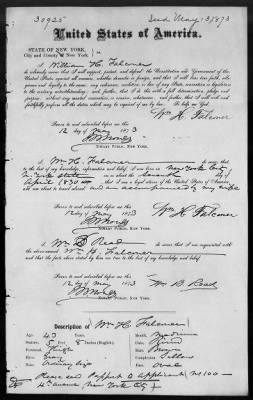 30925 Issd May 13/873
United States of America.
STATE OF NEW YORK,
City and County of New York, } ss.
I William H. Falconer
do solemnly swear that I will support, protect and defend the Constitution and Government of the
United States against all enemies, whether domestic or foreign, and that I will bear true faith, alle-
giance and loyalty to the same; any ordinance, resolution or law of any State, convention or legislature
to the contrary notwithstanding; and further, that I do this with a full determination, pledge and
purpose, without any mental reservation or evasion whatsoever, and further, that I will well and
faithfully perform all the duties which may be required of me by law. So help me God.
Wm H. Falconer
Sworn to and subscribed before me this
12 day of May 1873
NOTARY PUBLIC, NEW YORK.
I Wm H. Falconer do swear that
to the best of my knowledge, information and belief, I was born in New York City
N. York State on or about the day of
April 1830 that I am a loyal citizen of the United States of America,
and about to travel abroad and am accompanied by my wife
Sworn to and subscribed before me this
12 day of May 1873
Wm H Falconer
NOTARY PUBLIC, NEW YORK.
I Wm B Read do swear that I am acquainted with
the above-named Wm H Falconer
and that the facts above stated by him are true to the best of my knowledge and belief.
Sworn to and subscribed before me this
12 day of May 1873
Wm B Read
NOTARY PUBLIC, NEW YORK.
Description of Wm H Falconer
Age: 43 Mouth: Medium
Stature: 5 feet 8 Inches (English) Chin:
Forehead: High Hair:
Eyes: Gray Complexion:
Nose: Ordinary Face: Oval
Please send Passport to Applicant No 100
4th Avenue New York City